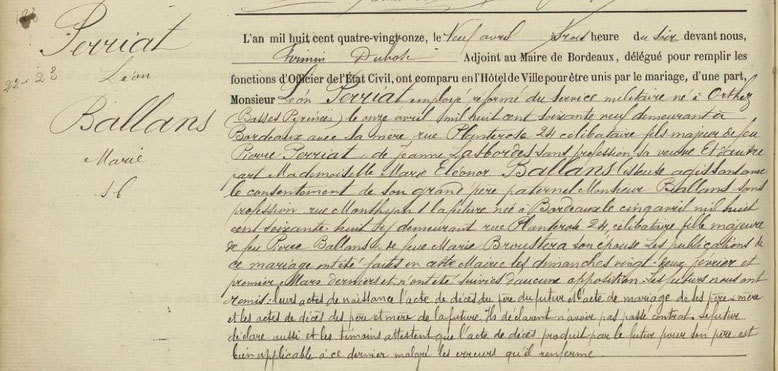 Perriat
Léon
22-23
Ballans
Marie
L'an mil huit cent quatre-vingt-onze, le Neuf avril à trois heure du soir devant nous,
Firmin Adjoint au Maire de Bordeaux, délégué pour remplir les
fonctions d'Officier de l'État Civil, ont comparu en l'Hôtel de Ville pour être unis par le mariage, d'une part,
Monsieur Léon Perriat employé réformé du service militaire né à Orthez
Basses Pyrénées) le onze avril mil huit cent soixante neuf demeurant à
Bordeaux avec sa mère rue Planterose 24 célibataire fils majeur de feu
Pierre Perriat & de Jeanne Lasbordes sans profession sa veuve Et d'autre
part Mademoiselle Marie Eléonor Ballans agissant avec
le consentement de son grand père paternel Monsieur Ballans sans
profession rue la future née à Bordeaux le cinq avril mil huit
cent soixante huit & demeurant rue Planterose 24, célibataire fille majeure
de feu Pierre Ballans & de feue Marie Broustera son épouse Les publications de
ce mariage ont été faites en cette Mairie les dimanches vingt-deux février et
premier Mars derniers et n'ont été suivies d'aucune opposition. Les futurs nous ont
remis: leurs actes de naissance l'acte de décès du père du futur et l'acte de mariage de ses père & mère
et les actes de décès des père et mère de la future. Ils déclarent n'avoir pas passé contrat. Le futur
déclare aussi et les témoins attestent que l'acte de décès produit par le futur pour son père est
bien applicable à ce dernier malgré les erreurs qu'il renferme